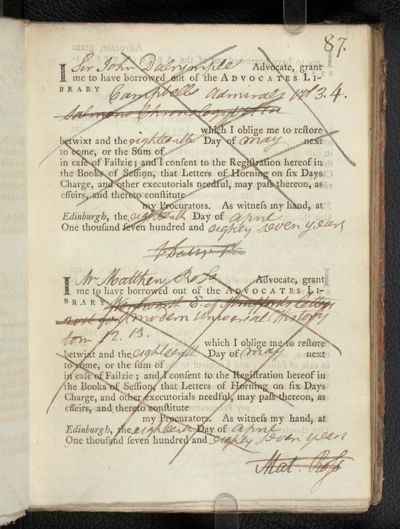 87.
I Sir John Dalrymple Advocate, grant
me to have borrowed out of the ADVOCATES LI-
BRARY Campbells Admirals vol 3. 4.
Salmons Chronology
which I oblige me to restore
betwixt and the eighteenth Day of may next
to come, or the Sum of
in case of Failzie; and I consent to the Registration hereof in
the Books of Session, that Letters of Horning on six Days
Charge, and other executorials needful, may pass thereon, as
effeirs, and thereto constitute
my Procurators. As witness my hand, at
Edinburgh, the eighteenth Day of aprile
One thousand seven hundred and eighty seven years
I Mr Matthew Ross Advocate, grant
me to have borrowed out of the ADVOCATES LI-
BRARY
modern universal History
tom 12. 13.
which I oblige me to restore
betwixt and the eighteenth Day of may next
to come, or the sum of
in case of Failzie; and I consent to the Registration hereof in
the Books of Session, that Letters of Horning on six Days
Charge, and other executorials needful, may pass thereon, as
effeirs, and thereto constitute
my Procurators. As witness my hand, at
Edinburgh, the eighteenth Day of aprile
One thousand seven hundred and eighty seven years
Mat. Ross